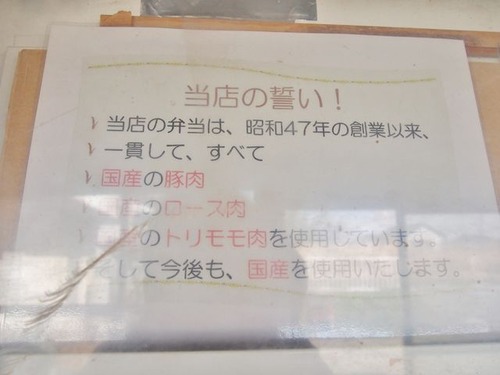 当店の誓い！
当店の弁当は、昭和47年の創業以来、
一貫して、すべて
国産の豚肉
国産のロース肉
国産のトリモモ肉を使用しています。
そして今後も、国産を使用いたします。